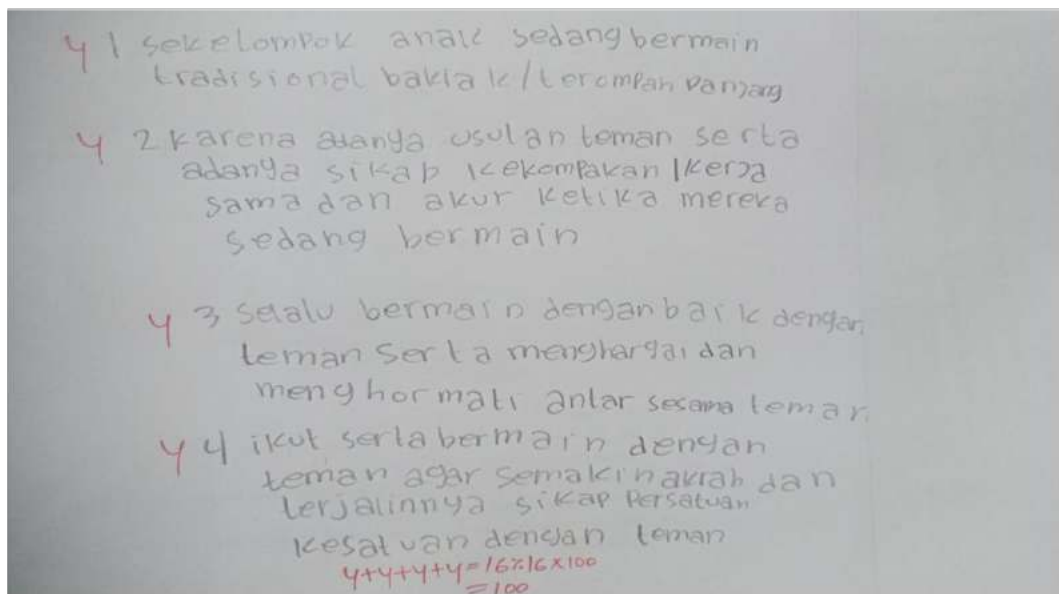 4 1 sekelompok anak sedang bermain
tradisional bakiak/terompah panjang
4 2 karena adanya usulan teman serta
adanya sikap kekompakan/kerja
sama dan akur ketika mereka
sedang bermain
4 3 selalu bermain dengan baik dengan
teman serta menghargai dan
menghormati antar sesama teman
4 4 ikut serta bermain dengan
teman agar semakin akrab dan
terjalinnya sikap Persatuan
kesatuan dengan teman
4+4+4+4=16%16x100
=100